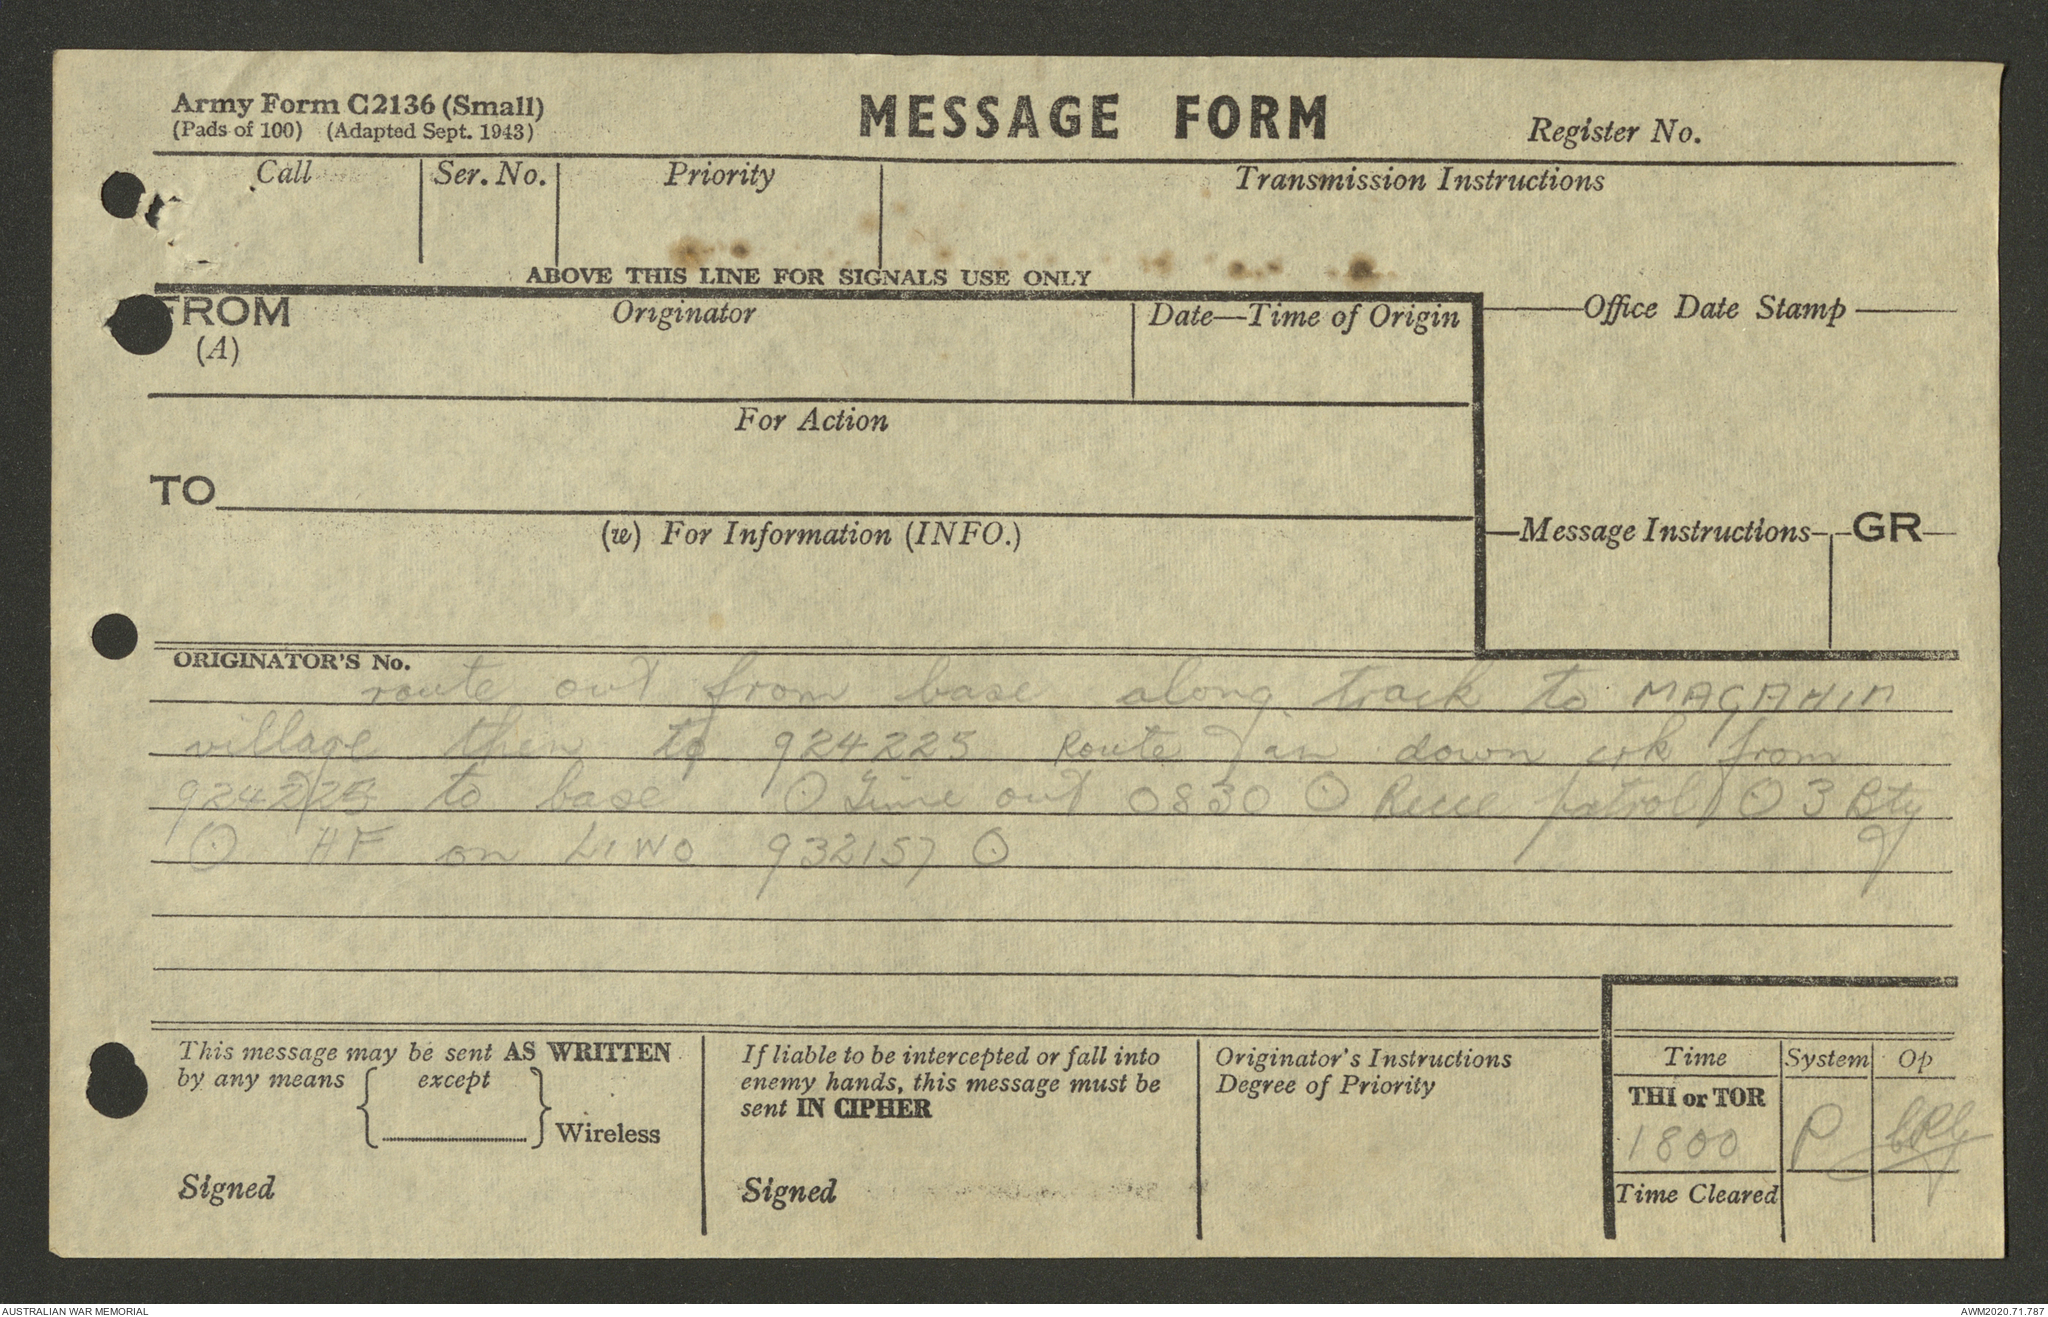 Army Form C2136 (Small)
(Pads of 100) (Adapted Sept. 1943)
MESSAGE FORM
Register No.
Call Ser. No. Priority Transmission Instructions
ABOVE THIS LINE FOR SIGNALS USE ONLY
FROM Originator Date—Time of Origin Office Date Stamp
(A)
For Action
TO
(w) For Information (INFO.) Message Instructions GR
ORIGINATOR'S No.
route out from base along track to MAGAHIN
village then to 924225 Route in down crk from
924225 to base O Time out 0830 O Recce patrol O 3 Bty
O HF on LIWO 932157 O
This message may be sent AS WRITTEN
by any means { except } Wireless
Signed
If liable to be intercepted or fall into
enemy hands, this message must be
sent IN CIPHER
Signed
Originator's Instructions
Degree of Priority
Time System Op
THI or TOR
1800 P
Time Cleared
AUSTRALIAN WAR MEMORIAL AWM2020.71.787